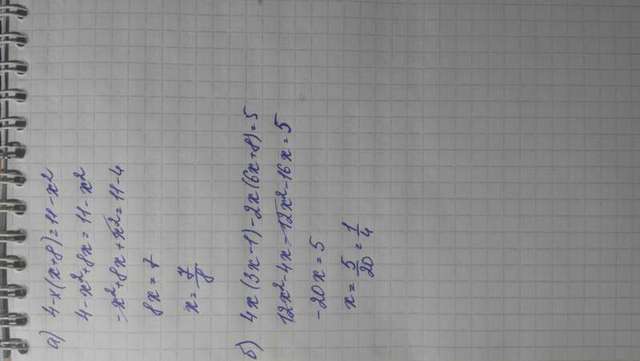 а) 4-x(x+8)=11-x²
4-x²+8x=11-x²
-x²+8x+x²=11-4
8x=7
x=7/8
б) 4x(3x-1)-2x(6x+8)=5
12x²-4x-12x²-16x=5
-20x=5
x=5/20=1/4